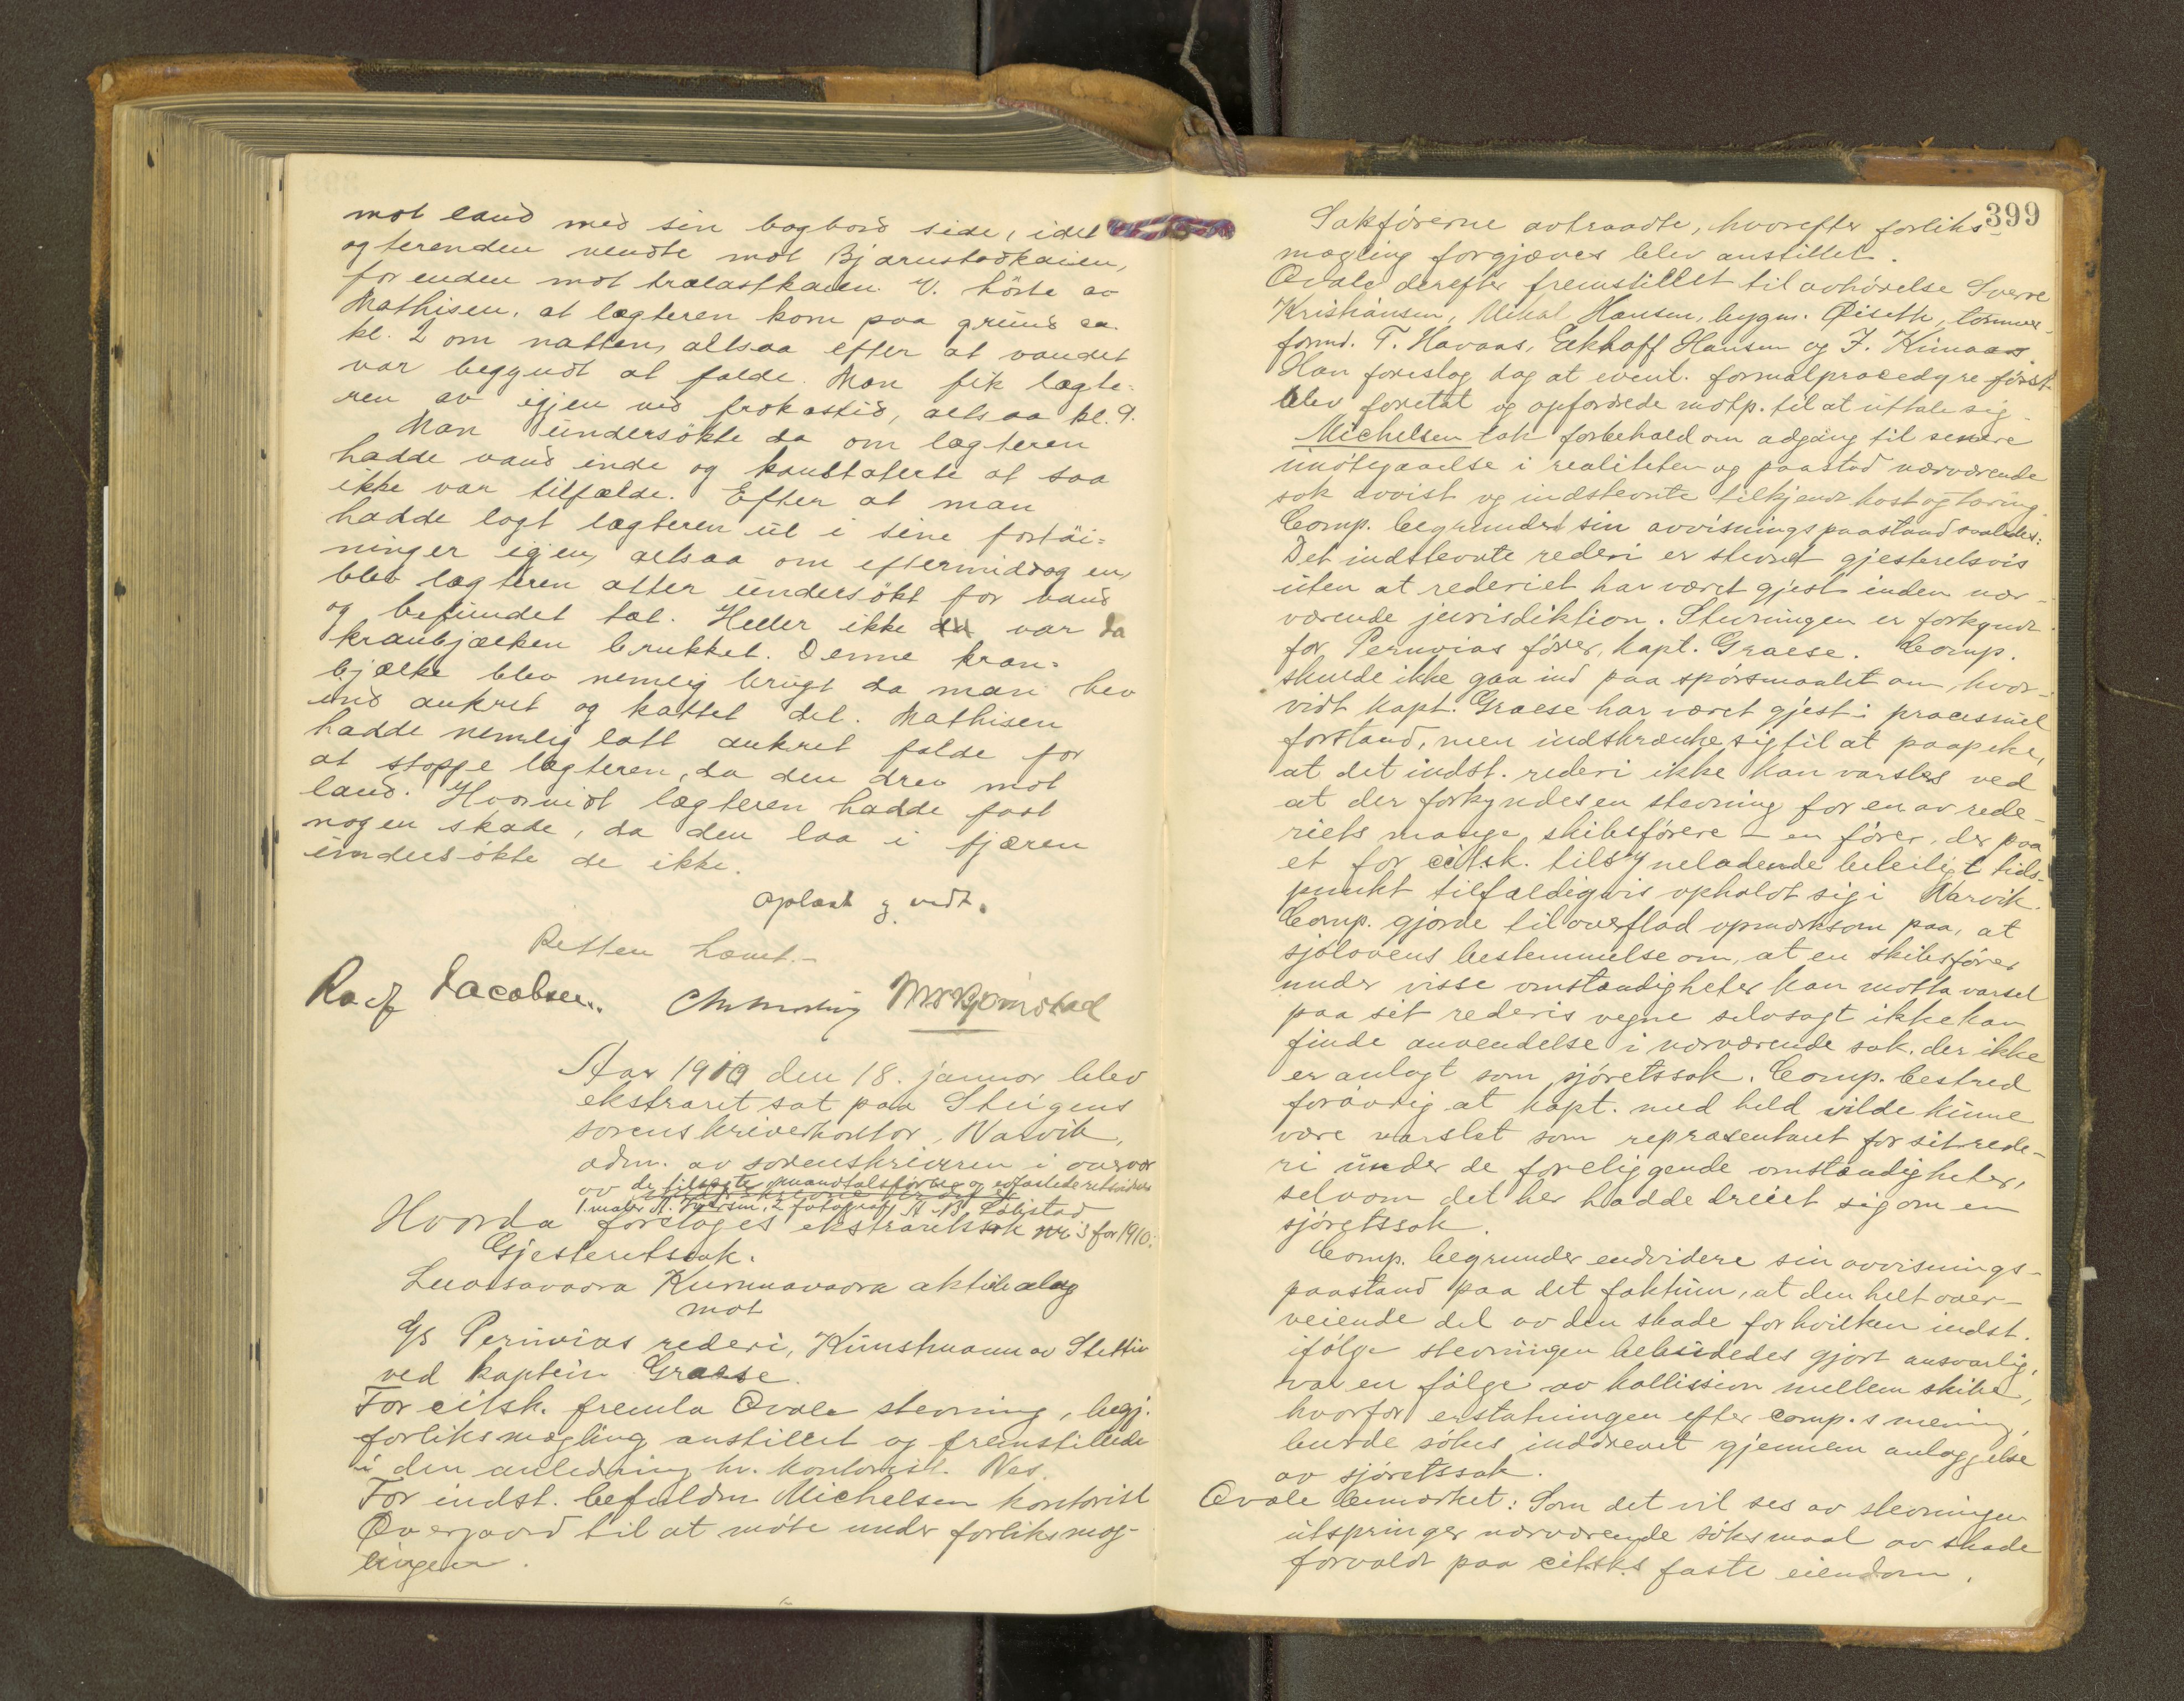 mot land med sin bagbord side, idet
agterenden vendte mot Bjarnstadkaien,
forenden mot trælastkaien. V. hörte av
Mathisen, at lægteren kom paa grund ca.
kl. 2 om natten, altsaa efter at vandet
var begyndt at falde. Man fik lægte=
ren av igjen ved frokostid, altsaa kl. 9.
Man undersökte da om lægteren
hadde vand inde og konstaterte at saa
ikke var tilfælde. Efter at man
hadde lagt lægteren ut i sine fortöi=
ninger igjen, altsaa om eftermiddagen,
blev lægteren atter undersökt for vand
og befundet tæt. Heller ikke var da
kranbjælken brukket. Denne kran=
bjælke blev nemlig brugt da man hev
ind ankret og kattet det. Mathisen
hadde nemlig latt ankret falde for
at stoppe lægteren, da den drev mot
land. Hvorvidt lægteren hadde faat
nogen skade, da den laa i fjæren
undersökte de ikke.
Oplæst og vedt.
Retten hævet.-
Jacobsen.
Aar 1910 den 18. januar blev
ekstraret sat paa Steigens
sorenskriverkontor, Narvik,
adm. av sorenskriveren i overvær
av de tilsagte og edfæstede retsvidner
1. maler 2 fotograf
Hvorda foretages ekstraretssak nr. 3 for 1910:
Gjesteretssak.
Luossavaara Kiirunavaara aktiebolag
mot
Ds Peruvias rederi, Kunstmann av Stettin
ved kaptein Graese.
For citsk. fremla Ovale stevning, begj.
forliksmægling anstillet og fremstillede
i den anledning hr. kontorist. Næs.
For indst. befuldm Michelsen kontorist
Overgaard til at möte under forliksmæg-
lingen.
399
Sakförerne avtraadte, hvorefter forliks-
mægling forgjæves blev anstillet.
Ovale derefter fremstillet til avhörelse Sverre
Kristiansen, Mikal Hansen, bygm. Öiseth, tömmer-
formd. T. Havaas, Eckhoff Hansen og J. Kimaas.
Han foreslog dog at event. formalprocedyre först
blev foretat og opfordrede motp. til at uttale sig.
Michelsen tok forbehold om adgang til senere
imötegaaelse i realiteten og paastod nærværende
sak avvist og indstevnte tilkjendt kost og tæring.
Comp. begrundet sin avvisningspaastand saaledes:
Det indstevnte rederi er stevnet gjesteretsvis
uten at rederiet har været gjest inden nær-
værende jurisdiktion. Stevningen er forkyndt
for Peruvias förer, kapt. Graese. Comp.
skulde ikke gaa ind paa spörsmaalet om hvor-
vidt kapt. Graese har været gjest i processuel
forstand, men indskrænke sig til at paapeke,
at det indst. rederi ikke kan varsles ved
at der forkyndes en stevning for en av rede-
riets mange skibsförere - en förer, der paa
et for citsk. tilsyneladende beleiligt tids-
punkt tilfældigvis opholdt sig i Narvik.
Comp. gjorde til overflod opmerksom paa, at
sjölovens bestemmelse om, at en skibsförer
under visse omstændigheter kan motta varsel
paa sit rederis vegne selvsagt ikke kan
finde anvendelse i nærværende sak, der ikke
er anlagt som sjöretssak. Comp. bestred
forövrig at kapt. med held vilde kunne
være varslet som repræsentant for sit rede-
ri under de foreliggende omstændigheter,
selvom det her hadde dreiet sig om en
sjöretssak.
Comp. begrunder endvidere sin avvisnings-
paastand paa det faktum, at den helt over-
veiende del av den skade for hvilken indst.
ifölge stevningen bebudedes gjort ansvarlig,
var en fölge av kollission mellem skibe,
hvorfor erstatningen efter comp.s mening
burde sökes inddrevet gjennem anlæggelse
av sjöretssak.
Ovale bemerket: Som det vil ses av stevningen
utspringer nærværende söksmaal av skade
forvoldt paa citsk.s faste eiendom.